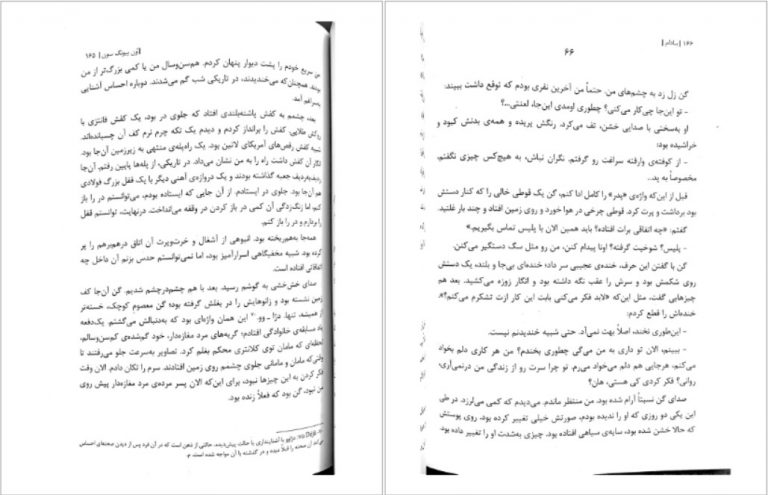 ۱۶۵ | اُون پیونگ سون |
من سریع خودم را پشت دیوار پنهان کردم. هم‌سن‌وسال من یا کمی بزرگ‌تر از من
بودند. همچنان‌که می‌خندیدند، در تاریکی شب گم می‌شدند. دوباره احساس آشنایی
به‌سراغم آمد.
بعد، چشمم به کفش پاشنه‌بلندی افتاد که جلوی در بود، یک کفش فانتزی با
روکش طلایی. کفش را برانداز کردم و دیدم یک تکه چرم نرم کف آن چسبانده‌اند.
شبیه کفش رقص‌های آمریکای لاتین بود. یک راه‌پله‌ی منتهی به زیرزمین آن‌جا بود.
انگار آن کفش داشت راه را به من نشان می‌داد. در تاریکی، از پله‌ها پایین رفتم. آن‌جا
ردیف‌به‌ردیف جعبه گذاشته بودند و یک دروازه‌ی آهنی دیگر با یک قفل بزرگ فولادی
هم آن‌جا بود. جلوی در ایستادم. از آن جایی که ایستاده بودم، می‌توانستم در را باز
کنم، اما زنگ‌زدگی آن کمی در باز کردن در وقفه می‌انداخت. درنهایت، توانستم قفل
را بردارم و در را باز کنم.
همه‌جا به‌هم‌ریخته بود. انبوهی از آشغال و خرت‌وپرت آن اتاق درهم‌برهم را پر
کرده بود. شبیه مخفیگاهی اسرارآمیز بود، اما نمی‌توانستم حدس بزنم آن داخل چه
اتفاقاتی افتاده است.
صدای خش‌خشی به گوشم رسید. بعد با هم چشم‌درچشم شدیم. گن آن‌جا کف
زمین نشسته بود و زانوهایش را در بغلش گرفته بود؛ گن معصوم کوچک، خسته‌تر
از همیشه، تنها. دژا ـ وو.۲۰ این همان واژه‌ای بود که به‌دنبالش می‌گشتم. یک‌دفعه
یاد مسابقه‌ی خانوادگی افتادم؛ گریه‌های مرد مغازه‌دار، خود گم‌شده‌ی کم‌سن‌وسالم،
لحظه‌ای که مامان توی کلانتری محکم بغلم کرد. تصاویر به‌سرعت جلو می‌رفتند تا
وقتی‌که مامان و مامانی جلوی چشمم روی زمین افتادند. سرم را تکان دادم. الان وقت
فکر کردن به این چیزها نبود، برای این‌که الان پسر مرده‌ی مرد مغازه‌دار پیش روی
من نبود، گن بود که فعلاً زنده بود.
Déjà vu: دژاوو یا آشناپنداری یا حالت پیش‌دیده. حالتی از ذهن است که در آن فرد پس از دیدن صحنه‌های احساس
می‌کند آن صحنه را قبلاً دیده و در گذشته با آن مواجه شده است. م.
۱۶۶ | بادام |
۶۶
گن زل زد به چشم‌های من. حتماً من آخرین نفری بودم که توقع داشت ببیند:
- تو این‌جا چی‌کار می‌کنی؟ چطوری اومدی این‌جا، لعنتی...؟
او به‌سختی با صدایی خشن، تف می‌کرد. رنگش پریده و همه‌ی بدنش کبود و
خراشیده بود:
- از کوفته‌ی وارفته سراغت رو گرفتم. نگران نباش، به هیچ‌کس چیزی نگفتم.
مخصوصاً به پد...
قبل از این‌که واژه‌ی «پدر» را کامل ادا کنم، گن یک قوطی خالی را که کنار دستش
بود برداشت و پرت کرد. قوطی چرخی در هوا خورد و روی زمین افتاد و چند بار غلتید.
گفتم: «چه اتفاقی برات افتاده؟ باید همین الان با پلیس تماس بگیریم.»
- پلیس؟ شوخیت گرفته؟ اونا پیدام کنن، من رو مثل سگ دستگیر می‌کنن.
گن با گفتن این حرف، خنده‌ی عجیبی سر داد؛ خنده‌ای بی‌جا و بلند، یک دستش
روی شکمش بود و سرش را عقب نگه داشته بود و انگار زوزه می‌کشید. بعد هم
چیزهایی گفت، مثل این‌که «لابد فکر می‌کنی بابت این کار ازت تشکرم می‌کنم؟».
خنده‌اش را قطع کردم:
- این‌طوری نخند، اصلاً بهت نمی‌آد. حتی شبیه خندیدنم نیست.
- ببینم، الان تو داری به من می‌گی چطوری بخندم؟ من هر کاری دلم بخواد
می‌کنم، هرجایی هم دلم می‌خواد می‌رم. تو چرا سرت رو از زندگی من درنمی‌آری،
روانی؟ فکر کردی کی هستی، هان؟
صدای گن نسبتاً آرام شده بود. من منتظر ماندم. می‌دیدم که کمی می‌لرزد. در طی
این یکی دو روزی که او را ندیده بودم، صورتش خیلی تغییر کرده بود. روی پوستش
که حالا خشن شده بود، سایه‌ی سیاهی افتاده بود. چیزی به‌شدت او را تغییر داده بود.